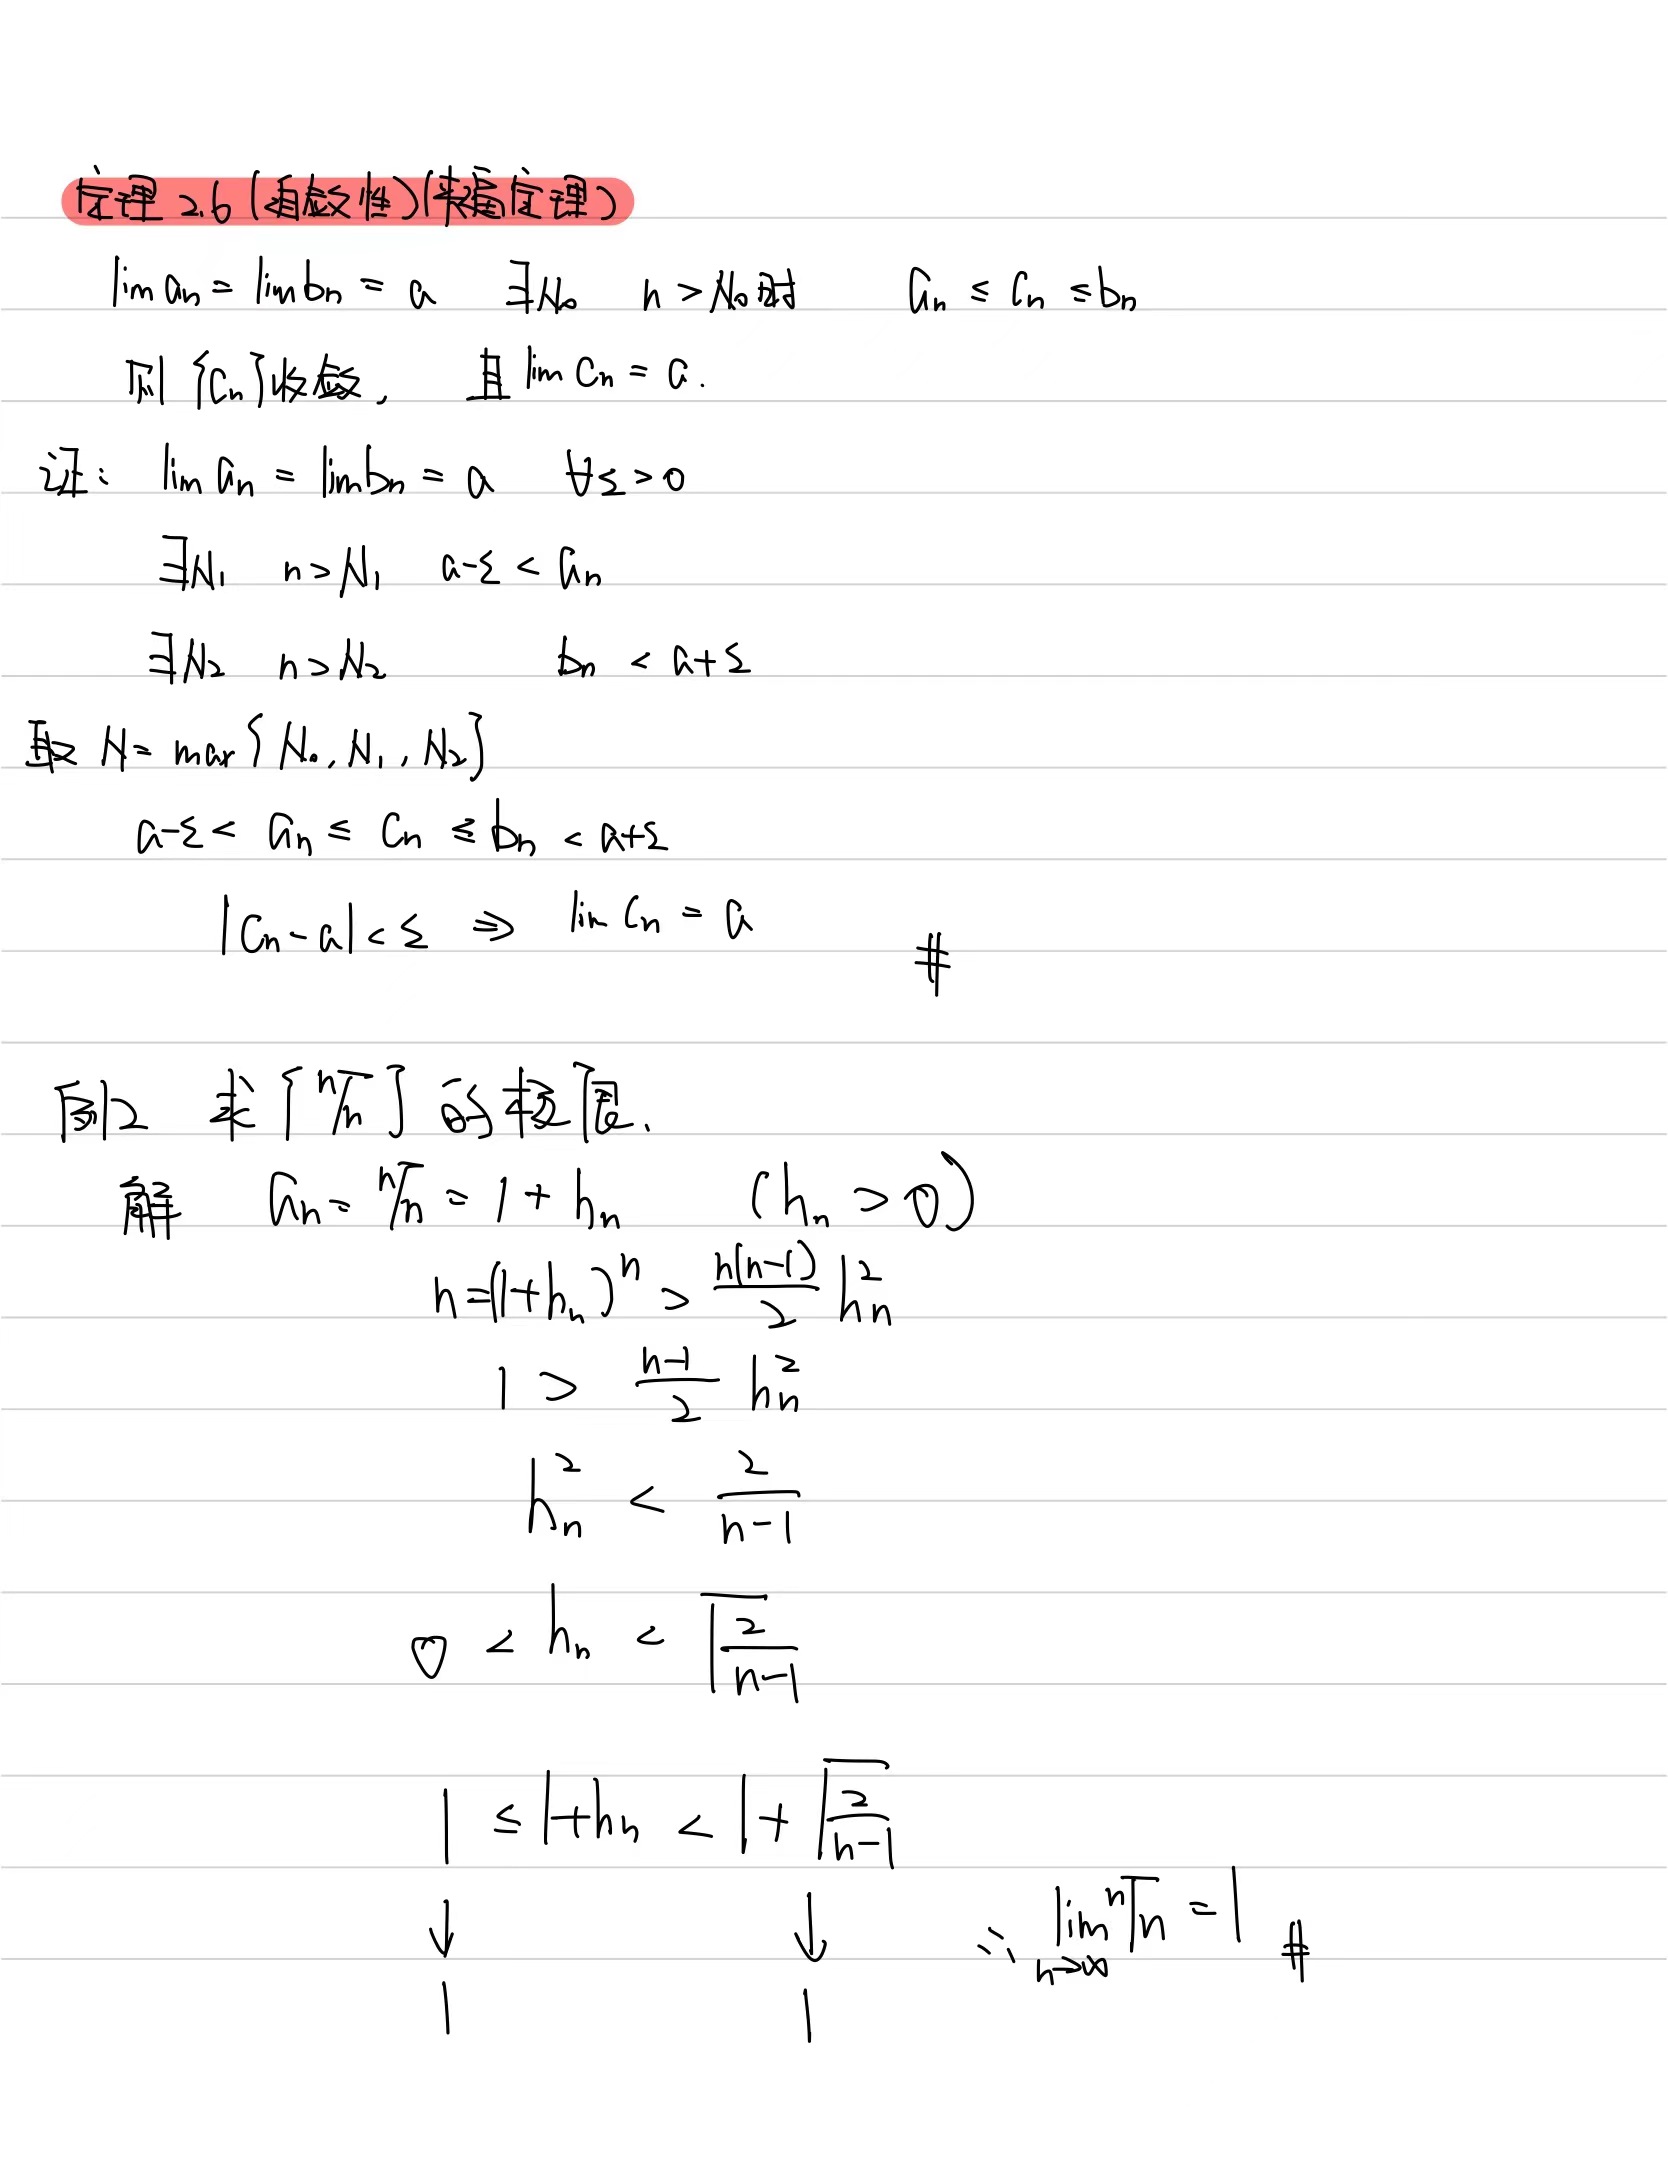 定理 2.6 (迫敛性)(夹逼定理)
lim aₙ = lim bₙ = a ∃N₀ n > N₀时 aₙ ≤ cₙ ≤ bₙ
则 {cₙ}收敛, 且 lim cₙ = a.
证: lim aₙ = lim bₙ = a ∀ε > 0
∃N₁ n > N₁ a-ε < aₙ
∃N₂ n > N₂ bₙ < a+ε
取 N = max{N₀, N₁, N₂}
a-ε < aₙ ≤ cₙ ≤ bₙ < a+ε
|cₙ - a| < ε ⇒ lim cₙ = a #
例2 求{ⁿ√n}的极限.
解 aₙ = ⁿ√n = 1 + hₙ (hₙ > 0)
n = (1+hₙ)ⁿ > n(n-1)/2 hₙ²
1 > (n-1)/2 hₙ²
hₙ² < 2/(n-1)
0 < hₙ < √(2/(n-1))
1 ≤ 1+hₙ < 1+√(2/(n-1))
↓ ↓ ∴ lim n→∞ ⁿ√n = 1 #
1 1